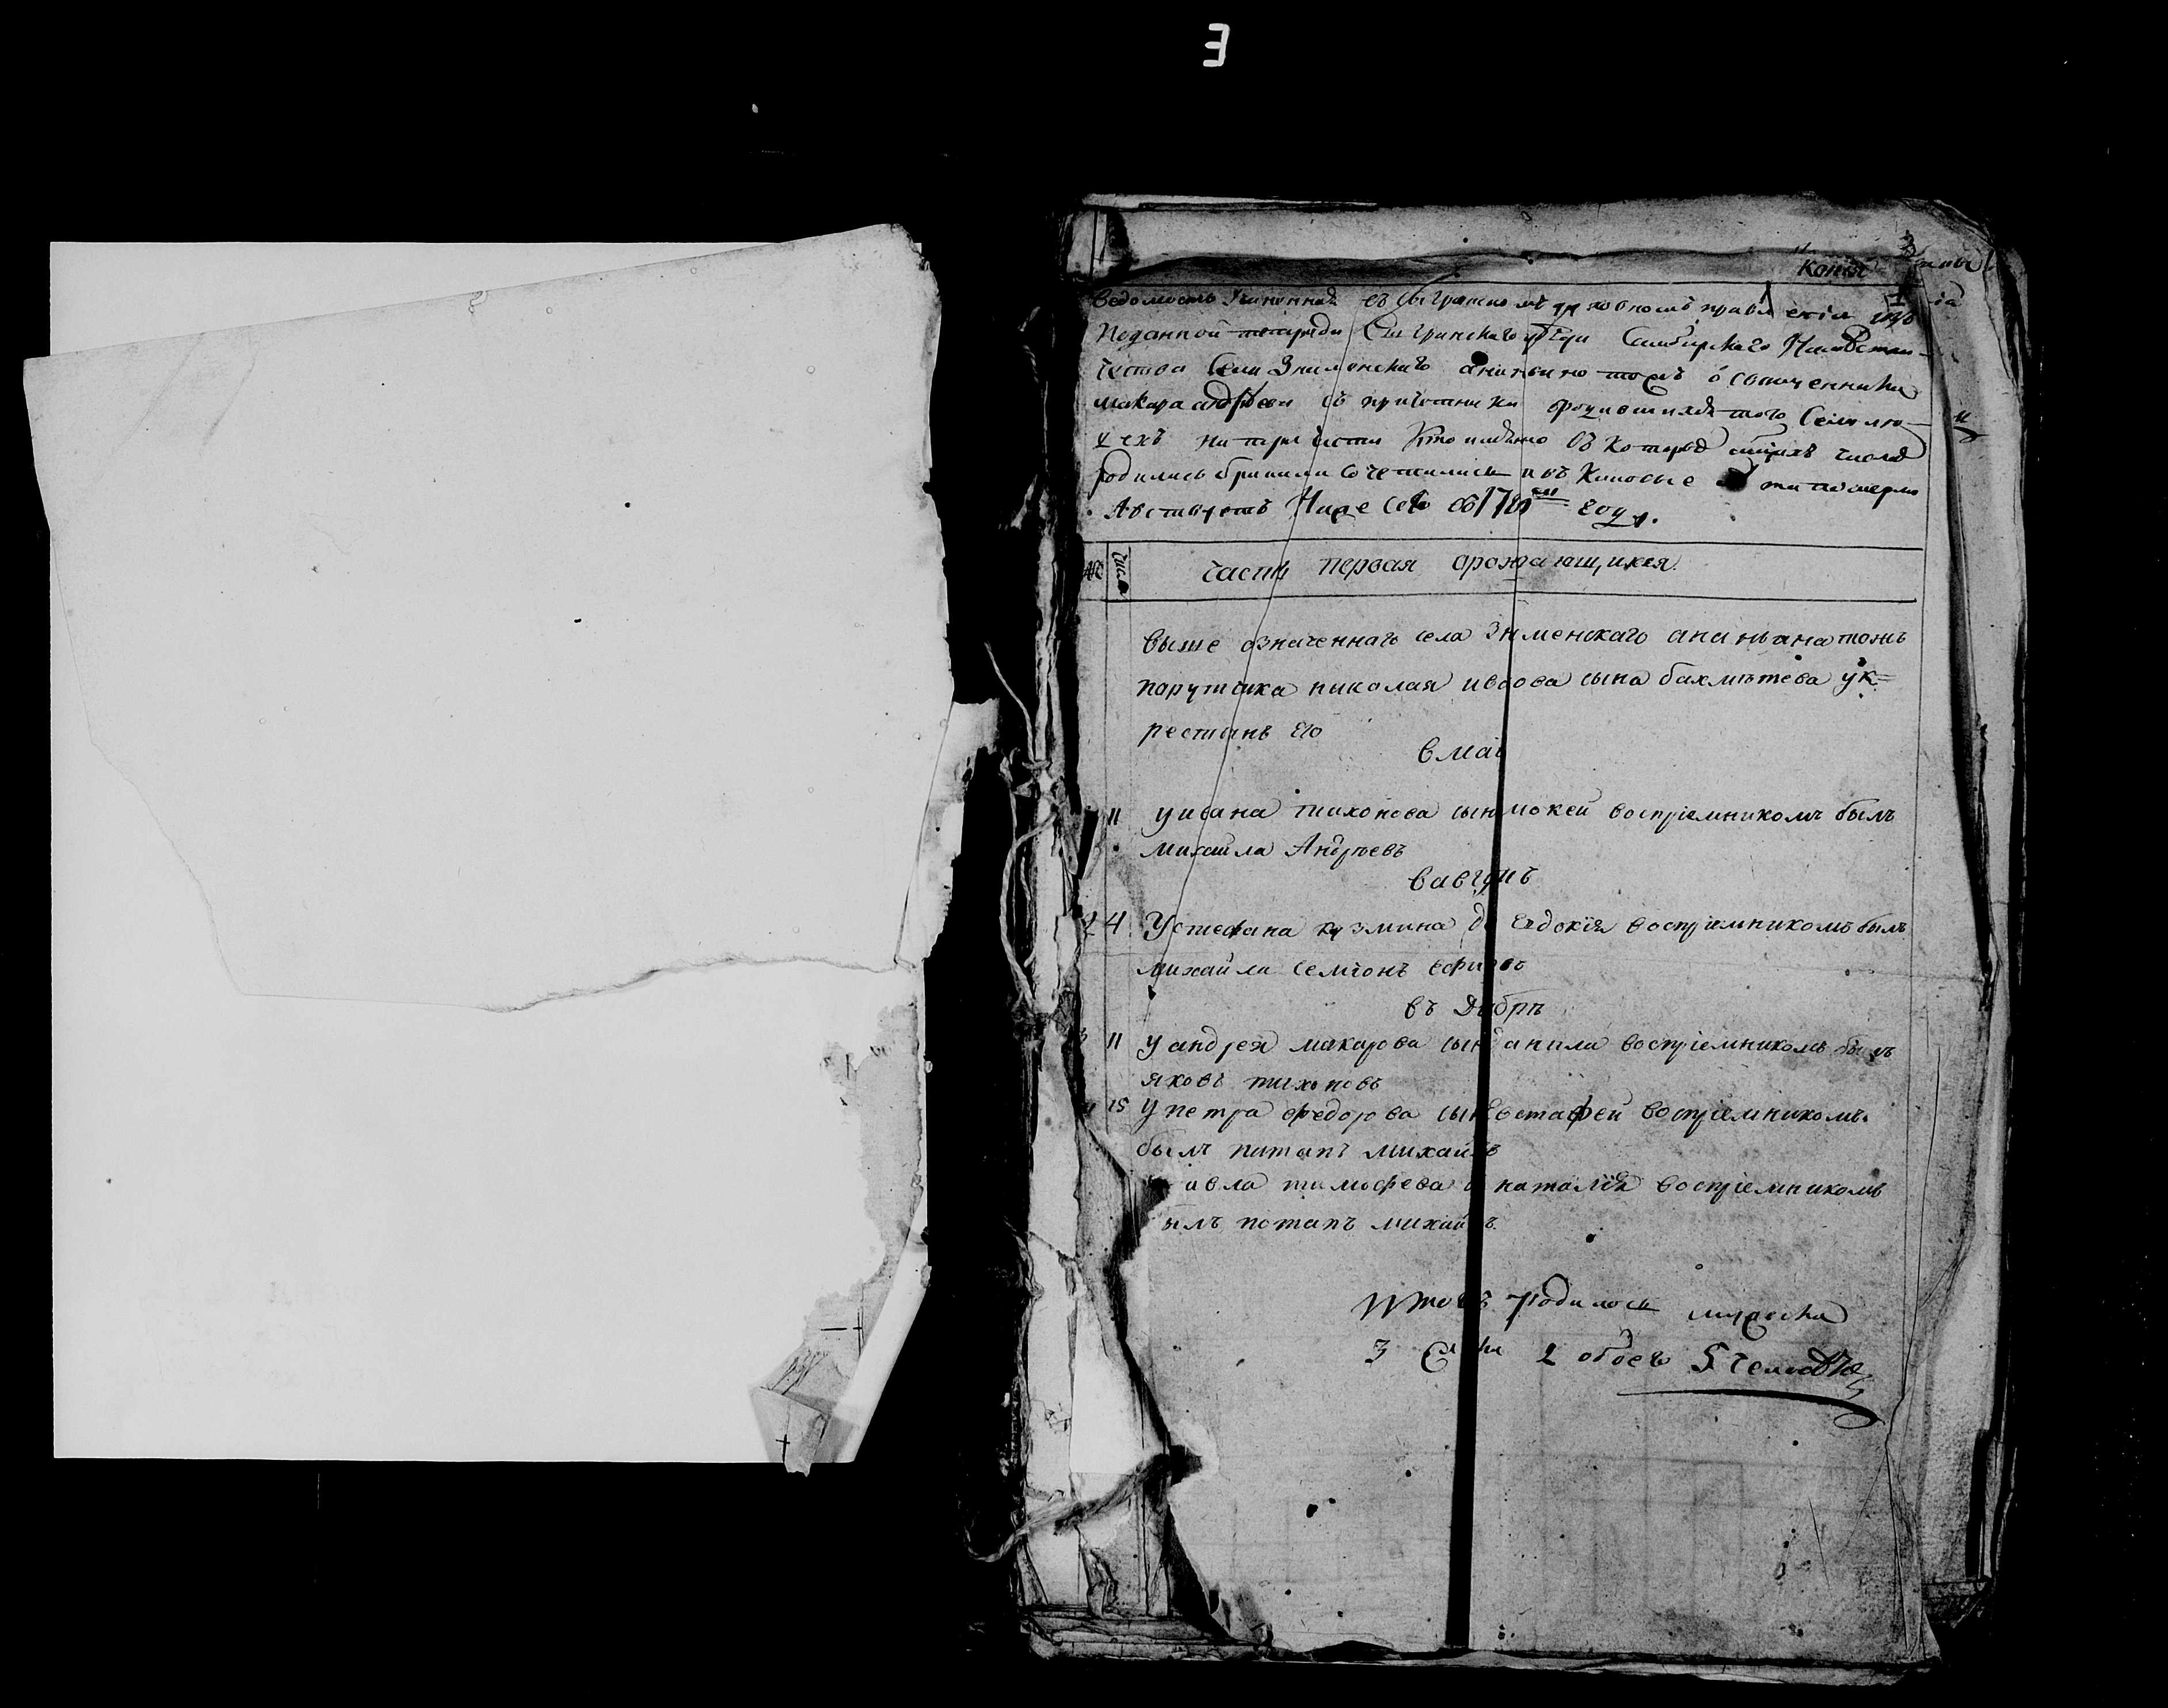 3
Копія
Ведомость учиненная въ сызранскомъ духовномъ правленіи изъ
Поданной тетради Сызранскаго уезда Симбирскаго Намѣстни-
чества Села Знаменскаго ананьино тожъ о священника
макара андреева съ причетники о родившихся того Села лю-
дехъ на три части Кто имянно въ которыхъ числѣ
родились браками сочетались и померли
Явствуетъ Ниже сего въ году.
№ Число часть первая орождающихся
выше означеннаго села знменскаго ананьина тожъ
порутчика николая ивѳова сына бахмѣтева ук=
рестьянъ его
в маи
11 уивана тихонова сынъ мокей воспріемникомъ былъ
михаила Андрѣевъ
в авгус
2 4 Устефана кузмина д Евдокія воспріемникомъ былъ
михайла семіонъ
въ дкбрѣ
3 11 у андрея макарова сынъ анила воспріемникомъ былъ
яковъ тихоновъ
15 у петра федорова сынъ Естафей воспріемникомъ
былъ патапъ михай въ
авла тимофева наталія воспріемникомъ
ылъ потапъ михай въ
Итого родилось мужеска
3 2 обоего 5 человѣкъ